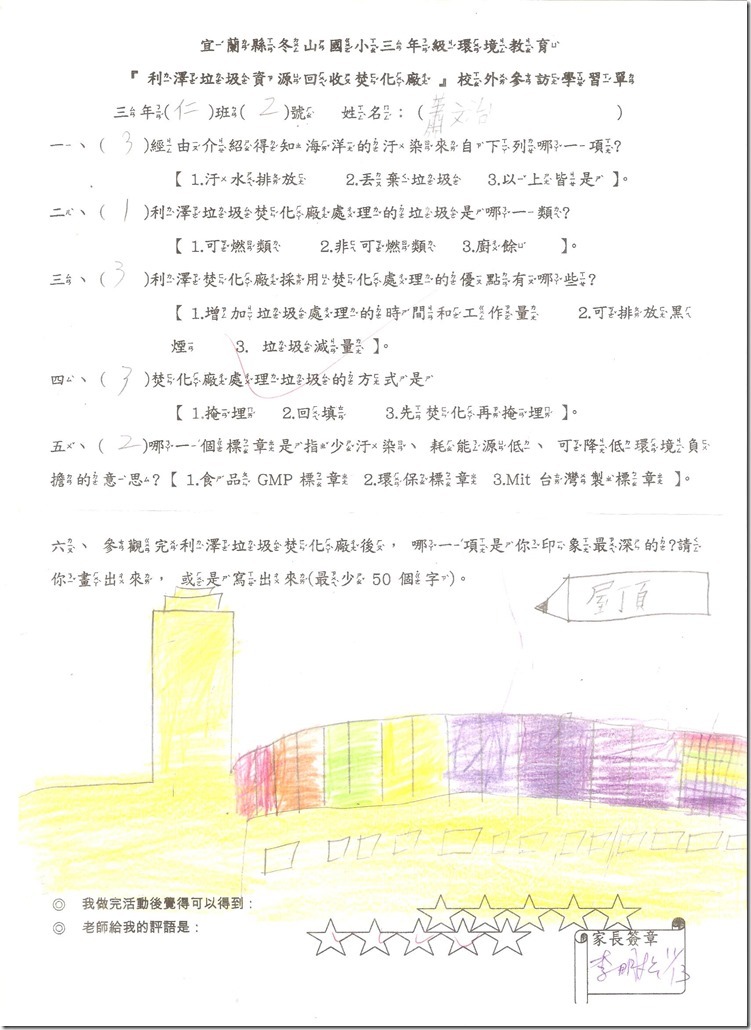 宜蘭縣冬山國小三年級環境教育
『 利澤垃圾資源回收焚化廠 』校外參訪學習單
三年(仁)班(2)號 姓名：(蕭文治)
一、(3)經由介紹得知海洋的汙染來自下列哪一項?
【 1.汙水排放 2.丟棄垃圾 3.以上皆是 】。
二、(1)利澤垃圾焚化廠處理的垃圾是哪一類?
【 1.可燃類 2.非可燃類 3.廚餘 】。
三、(3)利澤焚化廠採用焚化處理的優點有哪些?
【 1.增加垃圾處理的時間和工作量 2.可排放黑
煙 3. 垃圾減量 】。
四、(3)焚化廠處理垃圾的方式是
【 1.掩埋 2.回填 3.先焚化再掩埋 】。
五、(2)哪一個標章是指少汙染、耗能源低、可降低環境負
擔的意思?【 1.食品 GMP 標章 2.環保標章 3.Mit 台灣製標章 】。
六、參觀完利澤垃圾焚化廠後，哪一項是你印象最深的?請
你畫出來，或是寫出來(最少 50 個字)。
屋頂
◎ 我做完活動後覺得可以得到：
◎ 老師給我的評語是：
家長簽章